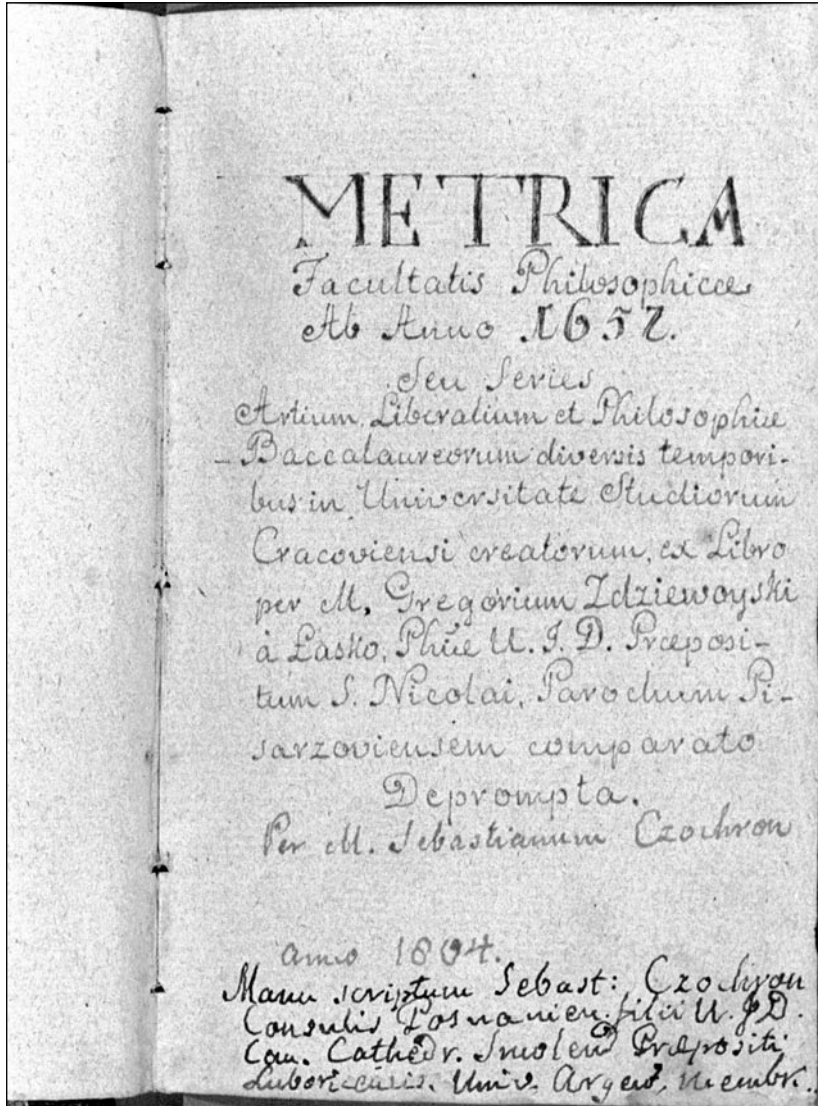 METRICA
Facultatis Philosophicæ
Ab Anno 1652.
Seu Series
Artium Liberalium et Philosophiæ
Baccalaureorum diversis tempori-
bus in Universitate Studiorum
Cracoviensi creatorum, ex Libro
per M. Gregorium Zdziewoyski
à Łasko, Phiæ U. J. D. Præposi-
tum S. Nicolai, Parochum Pi-
sarzoviensem comparato
Deprompta.
Per M. Sebastianum Czochron
anno 1804.
Manu scriptum Sebast: Czochron
Consulis Posnanien. filii U. J D.
Can. Cathedr. Smolen Præpositi
Univ. membr.